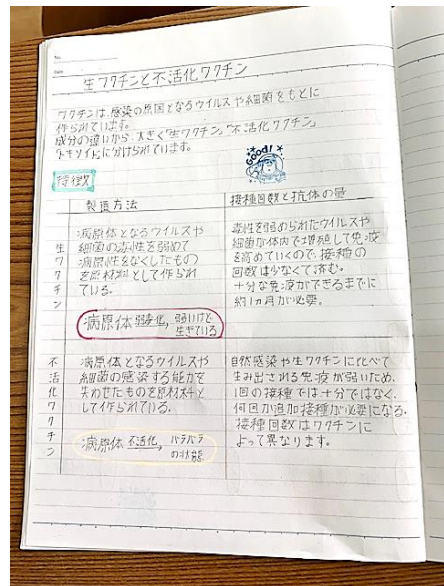 No.
Date
生ワクチンと不活化ワクチン
ワクチンは、感染の原因となるウイルスや細菌をもとに
作られています。
成分の違いから、大きく"生ワクチン"、"不活化ワクチン"
トキソイドに分けられています。
Good!
特徴
製造方法
接種回数と抗体の量
生ワクチン
病原体となるウイルスや
細菌の毒性を弱めて
病原性をなくしたもの
を原材料として作られ
ている。
病原体 弱毒化→ 弱いけど
生きている
毒性を弱められたウイルスや
細菌が体内で増殖して免疫
を高めていくので、接種の
回数は少なくて済む。
十分な免疫ができるまでに
約1ヵ月が必要。
不活化ワクチン
病原体となるウイルスや
細菌の感染する能力を
失わせたものを原材料と
して作られている。
病原体 不活化→ バラバラ
の状態
自然感染や生ワクチンに比べて
生み出される免疫が弱いため、
1回の接種では十分ではなく、
何回か追加接種が必要になる。
接種回数はワクチンに
よって異なります。